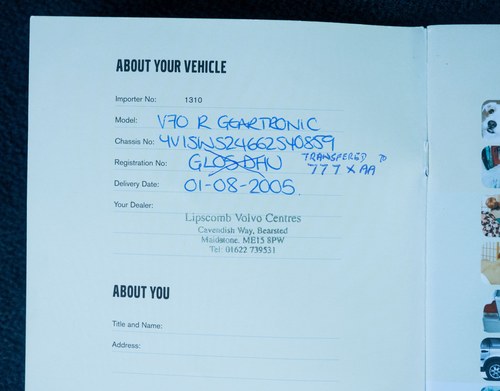 ABOUT YOUR VEHICLE
Importer No: 1310
Model: V70 R GEARTRONIC
Chassis No: 4V1SW524662540859
Registration No: TRANSFERED TO
777 XAA
Delivery Date: 01-08-2005.
Your Dealer:
Lipscomb Volvo Centres
Cavendish Way, Bearsted
Maidstone. ME15 8PW
Tel: 01622 739531
ABOUT YOU
Title and Name:
Address: